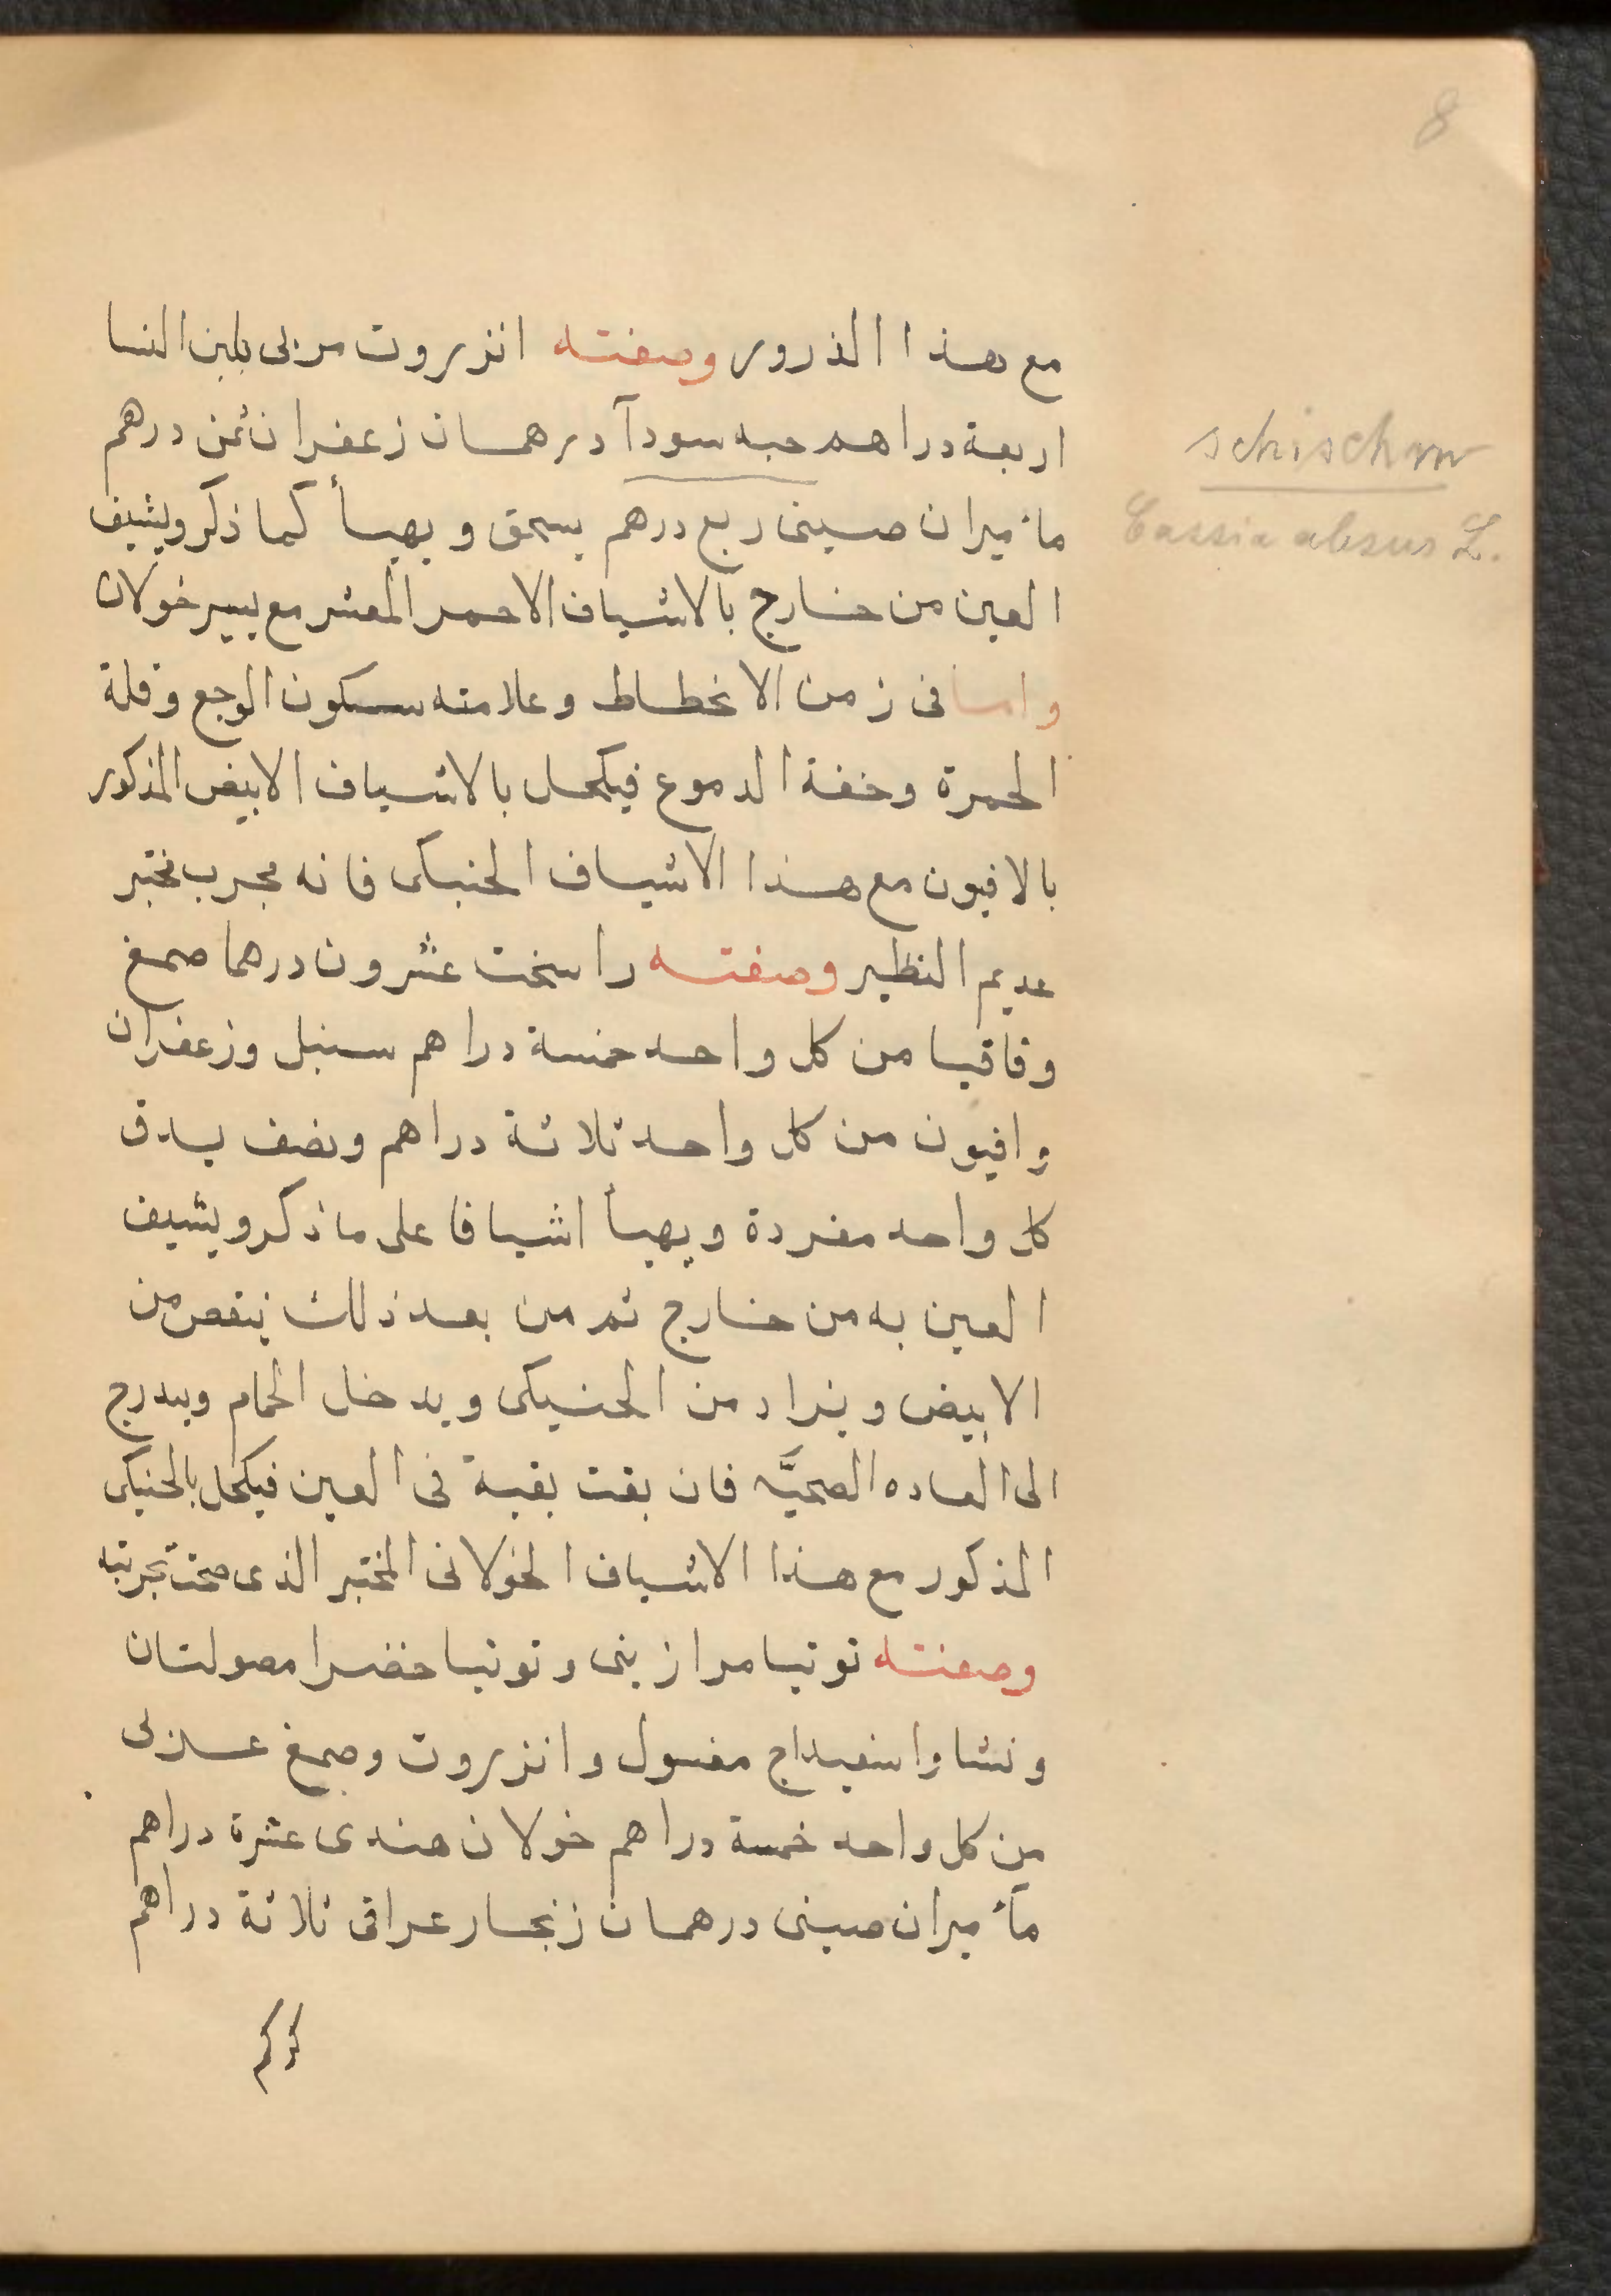 8
مع هذا الذرور وصفته انزروت مربى بلبن النسا
اربعة دراهم حبه سودآ درهمان زعفران ثمن درهم
schischm
مأميران صينى ربع درهم يسحق ويهيأ كما ذكر ويشيف
Cassia absus L.
العين من خارج بالاشياف الاحمر المعشر مع يسير خولان
واما فى زمن الانحطاط وعلامته سكون الوجع وقلة
الحمرة وخفة الدموع فيكحل بالاشياف الابيض المذكور
بالافيون مع هذا الاشياف الحنبكى فانه مجرب مختبر
عديم النظير وصفته راسخت عشرون درهما صمغ
وقاقيا من كل واحد خمسة دراهم سنبل وزعفران
وافيون من كل واحد ثلاثة دراهم ونصف يدق
كل واحد مفردة ويهيأ اشيافا على ما ذكر ويشيف
العين به من خارج ثم من بعد ذلك ينقص من
الابيض ويزاد من الحنيكى ويدخل الحمام ويدرج
الى العاده الصحيَّه فان بقت بقية فى العين فيكحل بالحنيكى
المذكور مع هذا الاشياف الخولانى المختبر الذى صحت تجربته
وصفته توتيا مرازينى وتوتيا خضرا مصولتان
ونشا واسفيداج مغسول وانزروت وصمغ عربى
من كل واحد خمسة دراهم خولان هندى عشرة دراهم
مأميران صينى درهمان زنجار عراقى ثلاثة دراهم